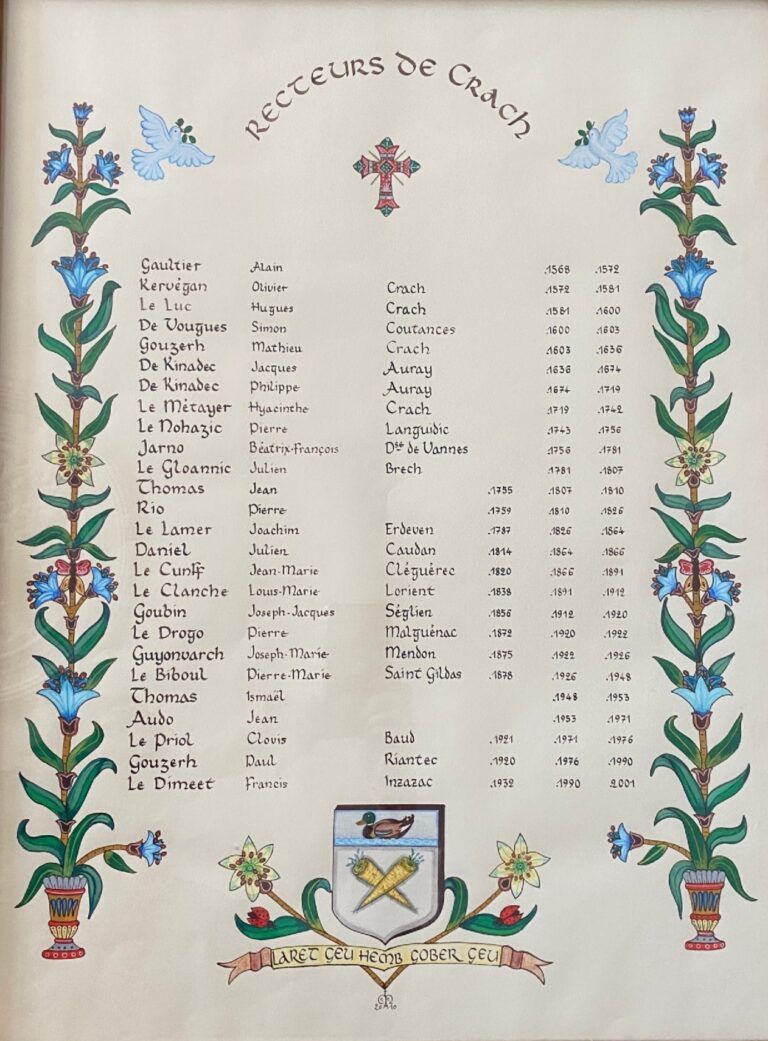 RECTEURS DE CRACH
Gaultier Alain .1568 .1572
Kervégan Olivier Crach .1572 .1581
Le Luc Hugues Crach .1581 .1600
De Vougues Simon Coutances .1600 .1603
Gouzerh Mathieu Crach .1603 .1636
De Kinadec Jacques Auray .1636 .1674
De Kinadec Philippe Auray .1674 .1719
Le Métayer Hyacinthe Crach .1719 .1742
Le Nohazic Pierre Languidic .1743 .1756
Jarno Béatrix-François de Vannes .1756 .1781
Le Gloannic Julien Brech .1781 .1807
Thomas Jean .1755 .1807 .1810
Rio Pierre .1759 .1810 .1826
Le Lamer Joachim Erdeven .1787 .1826 .1864
Daniel Julien Caudan .1814 .1864 .1866
Le Cunff Jean-Marie Cléguérec .1820 .1866 .1891
Le Clanche Louis-Marie Lorient .1838 .1891 .1912
Goubin Joseph-Jacques Séglien .1856 .1912 .1920
Le Drogo Pierre Malguénac .1872 .1920 .1922
Guyonvarch Joseph-Marie Mendon .1875 .1922 .1926
Le Biboul Pierre-Marie Saint Gildas .1878 .1926 .1948
Thomas Ismaël .1948 .1953
Audo Jean .1953 .1971
Le Priol Clovis Baud .1921 .1971 .1976
Gouzerh Paul Riantec .1920 .1976 .1990
Le Dimeet Francis Inzazac .1932 .1990 2001
LARET GEU HEMB GOBER GEU